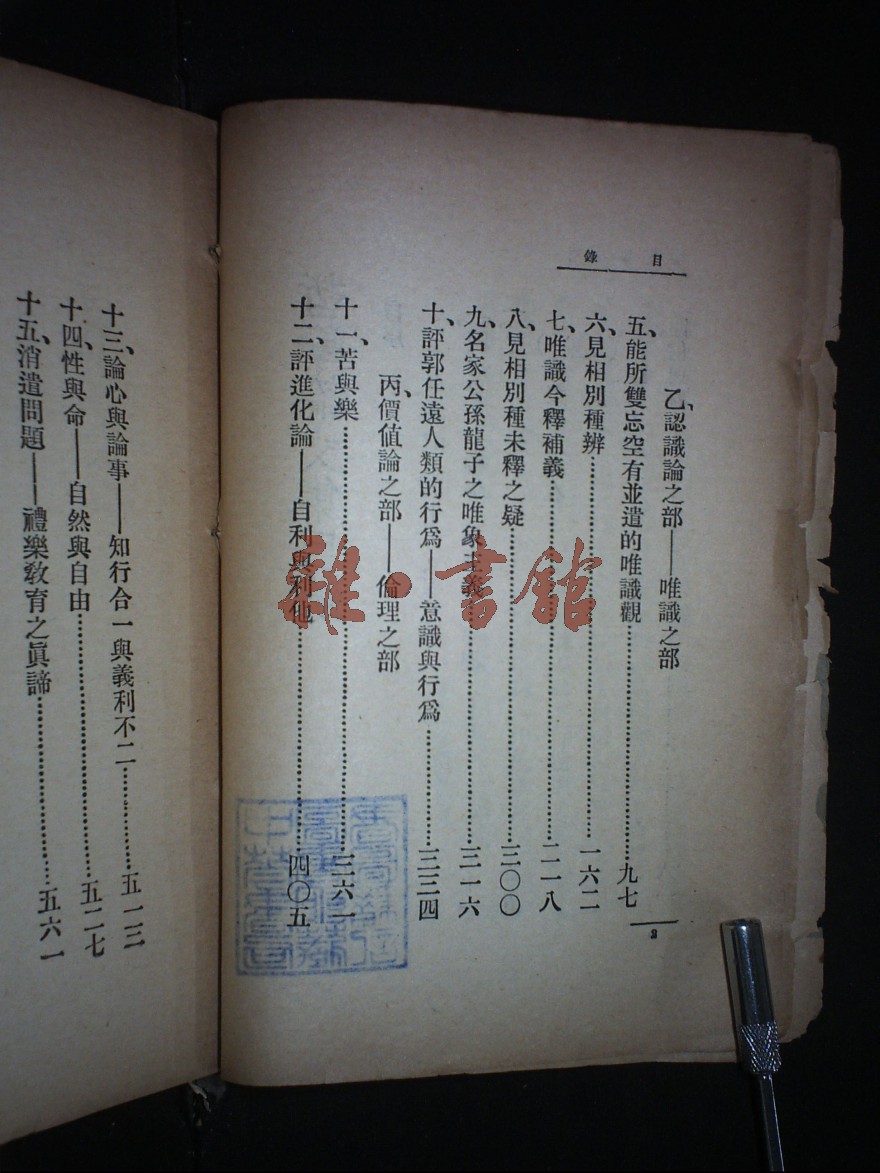 目錄
乙、認識論之部——唯識之部
五、能所雙忘空有並遣的唯識觀……九七
六、見相別種辨……一六二
七、唯識今釋補義……二一八
八、見相別種未釋之疑……三〇〇
九、名家公孫龍子之唯象主義……三一六
十、評郭任遠人類的行爲——意識與行爲……三三四
丙、價値論之部——倫理之部
十一、苦與樂……三六一
十二、評進化論——自利與利他……四〇五
2
十三、論心與論事——知行合一與義利不二……五一三
十四、性與命——自然與自由……五二七
十五、消遣問題——禮樂敎育之眞諦……五六一
雜·書館